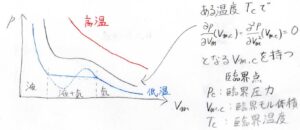 P
高温
低温
液
液+気
気
Vm
ある温度 Tc で
∂P/∂Vm (Vm,c) = ∂²P/∂Vm² (Vm,c) = 0
となる Vm,c を持つ
臨界点
Pc : 臨界圧力
Vm,c : 臨界モル体積
Tc : 臨界温度